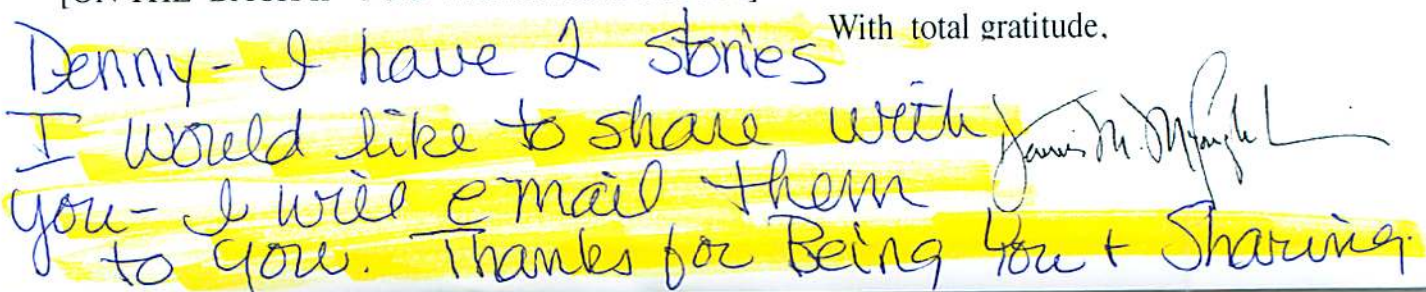 [ON THE
With total gratitude,
Denny - I have 2 stories
I would like to share with
you - I will email them
to you. Thanks for Being You + Sharing.